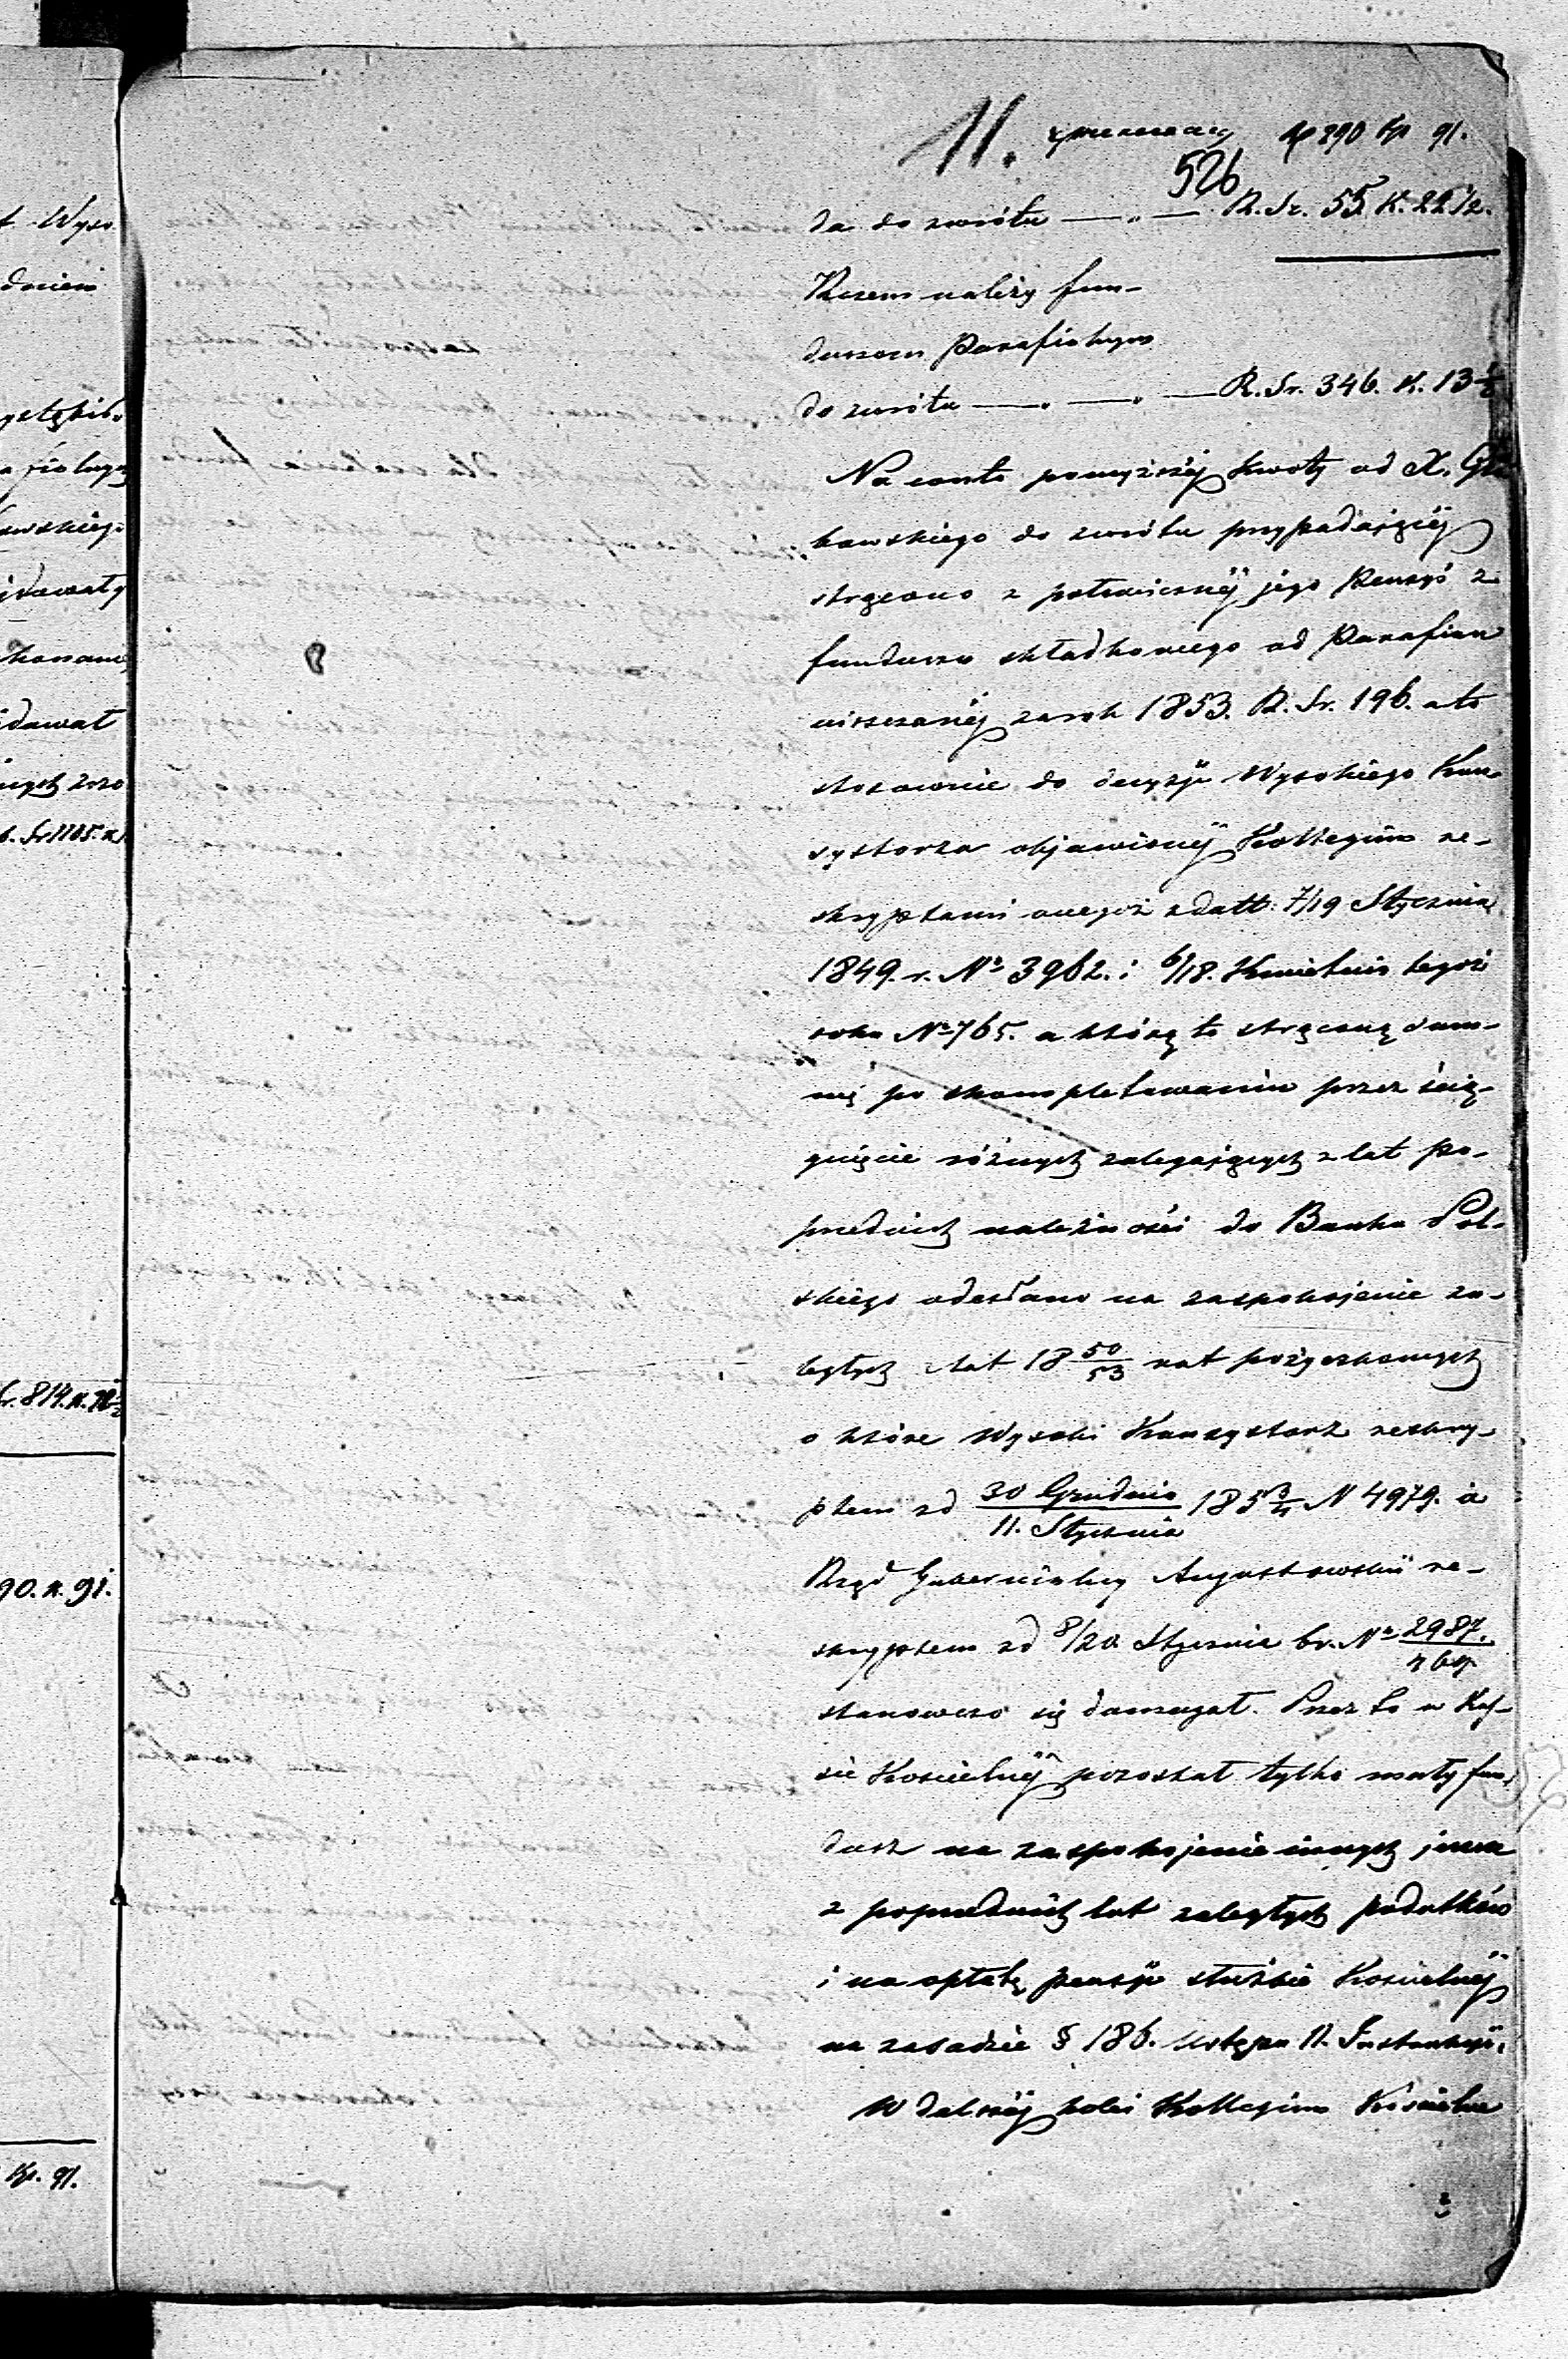 11. z przeniesienia rp 290 kp 91.
526
da do zwrótu —„— R. Sr. 55 K. 22 1/2.
Razem należy fun-
duszom Parafialnym
do zwrótu —„—„— R. Sr. 346. K. 13 1/2
Na conto powyższéj kwoty od X.
bowskiego do zwrótu przypadającéj
strącono z połowicznéj jego Pensyi z
funduszu składkowego od Parafian
uiszczanéj za rok 1853. R. Sr. 196. a to
stosownie do decyzji Wysokiego Kon-
systorza objawionéj Kollegium re-
skryptami onegoż z datt: 7/19 Stycznia
1849. r. No 3962. i 6/18. Kwietnia tegoż
roku No 765. a którą to strąconą sum-
mę po skompletowaniu przez ścią-
gnięcie różnych zalegających z lat po-
przednich należności do Banku Pol-
skiego odesłano na zaspokojenie za-
ległych z lat 18 50/53 rat pożyczkowych
o które Wysoki Konsystorz reskry-
ptem z d 30 Grudnia/11. Stycznia 185 3/4 N 4979. a
Rząd Gubernialny Augustowski re-
skryptem z d 8/20 Stycznia br. No 2987.
stanowczo się domagał. Przez to w Kas-
sie Kościelnéj pozostał tylko mały fun-
dusz na zaspokojenie innych jeszcze
z poprzednich lat zaległych podatków
i na opłatę pensji służbie Kościelnéj
na zasadzie § 186. ustępu 11. Instrukcji.
W dalszéj kolei Kollegium Kościelne
3